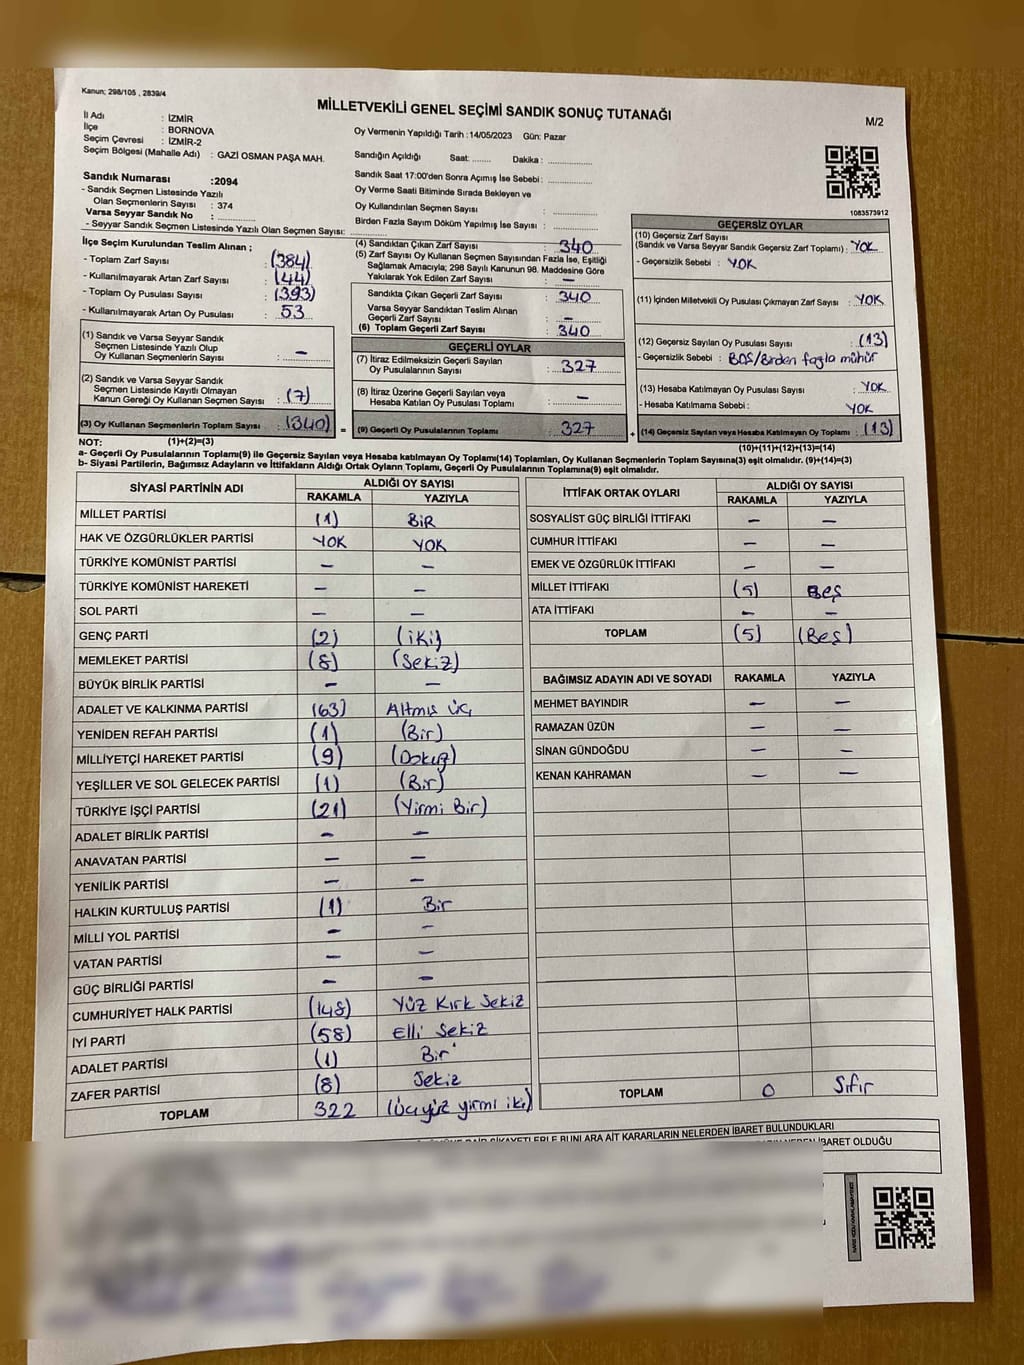 Kanun; 298/105 , 2839/4
MİLLETVEKİLİ GENEL SEÇİMİ SANDIK SONUÇ TUTANAĞI
M/2
İl Adı : İZMİR
İlçe : BORNOVA
Seçim Çevresi : İZMİR-2
Seçim Bölgesi (Mahalle Adı) : GAZİ OSMAN PAŞA MAH.
Sandık Numarası :2094
- Sandık Seçmen Listesinde Yazılı
Olan Seçmenlerin Sayısı : 374
Varsa Seyyar Sandık No :
- Seyyar Sandık Seçmen Listesinde Yazılı Olan Seçmen Sayısı:
Oy Vermenin Yapıldığı Tarih :14/05/2023 Gün: Pazar
Sandığın Açıldığı Saat: ........ Dakika :
Sandık Saat 17:00'den Sonra Açımış İse Sebebi :
Oy Verme Saati Bitiminde Sırada Bekleyen ve
Oy Kullandırılan Seçmen Sayısı :
Birden Fazla Sayım Döküm Yapılmış İse Sayısı :
1083573912
İlçe Seçim Kurulundan Teslim Alınan ;
- Toplam Zarf Sayısı : (384)
- Kullanılmayarak Artan Zarf Sayısı : (44)
- Toplam Oy Pusulası Sayısı : (393)
- Kullanılmayarak Artan Oy Pusulası : 53
(1) Sandık ve Varsa Seyyar Sandık
Seçmen Listesinde Yazılı Olup
Oy Kullanan Seçmenlerin Sayısı : –
(2) Sandık ve Varsa Seyyar Sandık
Seçmen Listesinde Kayıtlı Olmayan
Kanun Gereği Oy Kullanan Seçmen Sayısı : (7)
(3) Oy Kullanan Seçmenlerin Toplam Sayısı : (340)
(4) Sandıktan Çıkan Zarf Sayısı : 340
(5) Zarf Sayısı Oy Kullanan Seçmen Sayısından Fazla İse, Eşitliği
Sağlamak Amacıyla; 298 Sayılı Kanunun 98. Maddesine Göre
Yakılarak Yok Edilen Zarf Sayısı : –
Sandıkta Çıkan Geçerli Zarf Sayısı : 340
Varsa Seyyar Sandıktan Teslim Alınan
Geçerli Zarf Sayısı : –
(6) Toplam Geçerli Zarf Sayısı : 340
GEÇERLİ OYLAR
(7) İtiraz Edilmeksizin Geçerli Sayılan
Oy Pusulalarının Sayısı : 327
(8) İtiraz Üzerine Geçerli Sayılan veya
Hesaba Katılan Oy Pusulası Toplamı : –
= (9) Geçerli Oy Pusulalarının Toplamı : 327
GEÇERSİZ OYLAR
(10) Geçersiz Zarf Sayısı
(Sandık ve Varsa Seyyar Sandık Geçersiz Zarf Toplamı) : YOK
- Geçersizlik Sebebi : YOK
(11) İçinden Milletvekili Oy Pusulası Çıkmayan Zarf Sayısı : YOK
(12) Geçersiz Sayılan Oy Pusulası Sayısı : (13)
- Geçersizlik Sebebi : BOŞ/Birden fazla mühür
(13) Hesaba Katılmayan Oy Pusulası Sayısı : YOK
- Hesaba Katılmama Sebebi : YOK
+ (14) Geçersiz Sayılan veya Hesaba Katılmayan Oy Toplamı : (13)
NOT: (1)+(2)=(3)
(10)+(11)+(12)+(13)=(14)
a- Geçerli Oy Pusulalarının Toplamı(9) ile Geçersiz Sayılan veya Hesaba katılmayan Oy Toplamı(14) Toplamları, Oy Kullanan Seçmenlerin Toplam Sayısına(3) eşit olmalıdır. (9)+(14)=(3)
b- Siyasi Partilerin, Bağımsız Adayların ve İttifakların Aldığı Ortak Oyların Toplamı, Geçerli Oy Pusulalarının Toplamına(9) eşit olmalıdır.
SİYASİ PARTİNİN ADI ALDIĞI OY SAYISI
RAKAMLA YAZIYLA
MİLLET PARTİSİ (1) BİR
HAK VE ÖZGÜRLÜKLER PARTİSİ YOK YOK
TÜRKİYE KOMÜNİST PARTİSİ – –
TÜRKİYE KOMÜNİST HAREKETİ – –
SOL PARTİ – –
GENÇ PARTİ (2) (iki)
MEMLEKET PARTİSİ (8) (Sekiz)
BÜYÜK BİRLİK PARTİSİ – –
ADALET VE KALKINMA PARTİSİ (63) Altmış üç
YENİDEN REFAH PARTİSİ (1) (Bir)
MİLLİYETÇİ HAREKET PARTİSİ (9) (Dokuz)
YEŞİLLER VE SOL GELECEK PARTİSİ (1) (Bir)
TÜRKİYE İŞÇİ PARTİSİ (21) (Yirmi Bir)
ADALET BİRLİK PARTİSİ – –
ANAVATAN PARTİSİ – –
YENİLİK PARTİSİ – –
HALKIN KURTULUŞ PARTİSİ (1) Bir
MİLLİ YOL PARTİSİ – –
VATAN PARTİSİ – –
GÜÇ BİRLİĞİ PARTİSİ – –
CUMHURİYET HALK PARTİSİ (148) Yüz Kırk Sekiz
İYİ PARTİ (58) Elli Sekiz
ADALET PARTİSİ (1) Bir
ZAFER PARTİSİ (8) Sekiz
TOPLAM 322 (üçyüz yirmi iki)
İTTİFAK ORTAK OYLARI ALDIĞI OY SAYISI
RAKAMLA YAZIYLA
SOSYALİST GÜÇ BİRLİĞİ İTTİFAKI – –
CUMHUR İTTİFAKI – –
EMEK VE ÖZGÜRLÜK İTTİFAKI – –
MİLLET İTTİFAKI (5) Beş
ATA İTTİFAKI – –
TOPLAM (5) (Beş)
BAĞIMSIZ ADAYIN ADI VE SOYADI RAKAMLA YAZIYLA
MEHMET BAYINDIR – –
RAMAZAN ÜZÜN – –
SİNAN GÜNDOĞDU – –
KENAN KAHRAMAN – –
TOPLAM 0 Sıfır
ŞİKAYETLERLE BUNLARA AİT KARARLARIN NELERDEN İBARET BULUNDUKLARI
İBARET OLDUĞU